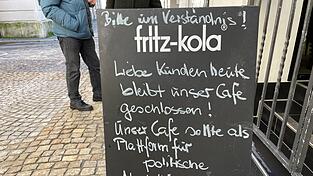 Bitte um Verständnis!
fritz-kola
Liebe Kunden heute
bleibt unser Cafe
geschlossen!
Unser Cafe sollte als
Plattform für
politische